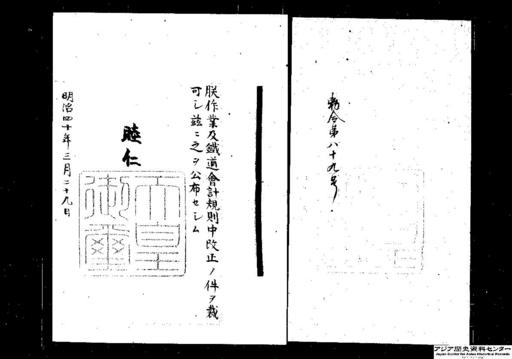 勅令第八十九号
朕作業及鐵道會計規則中改正ノ件ヲ裁
可シ茲ニ之ヲ公布セシム
睦仁
天皇
御璽
明治四十年三月二十九日
アジア歴史資料センター
Japan Center for Asian Historical Records